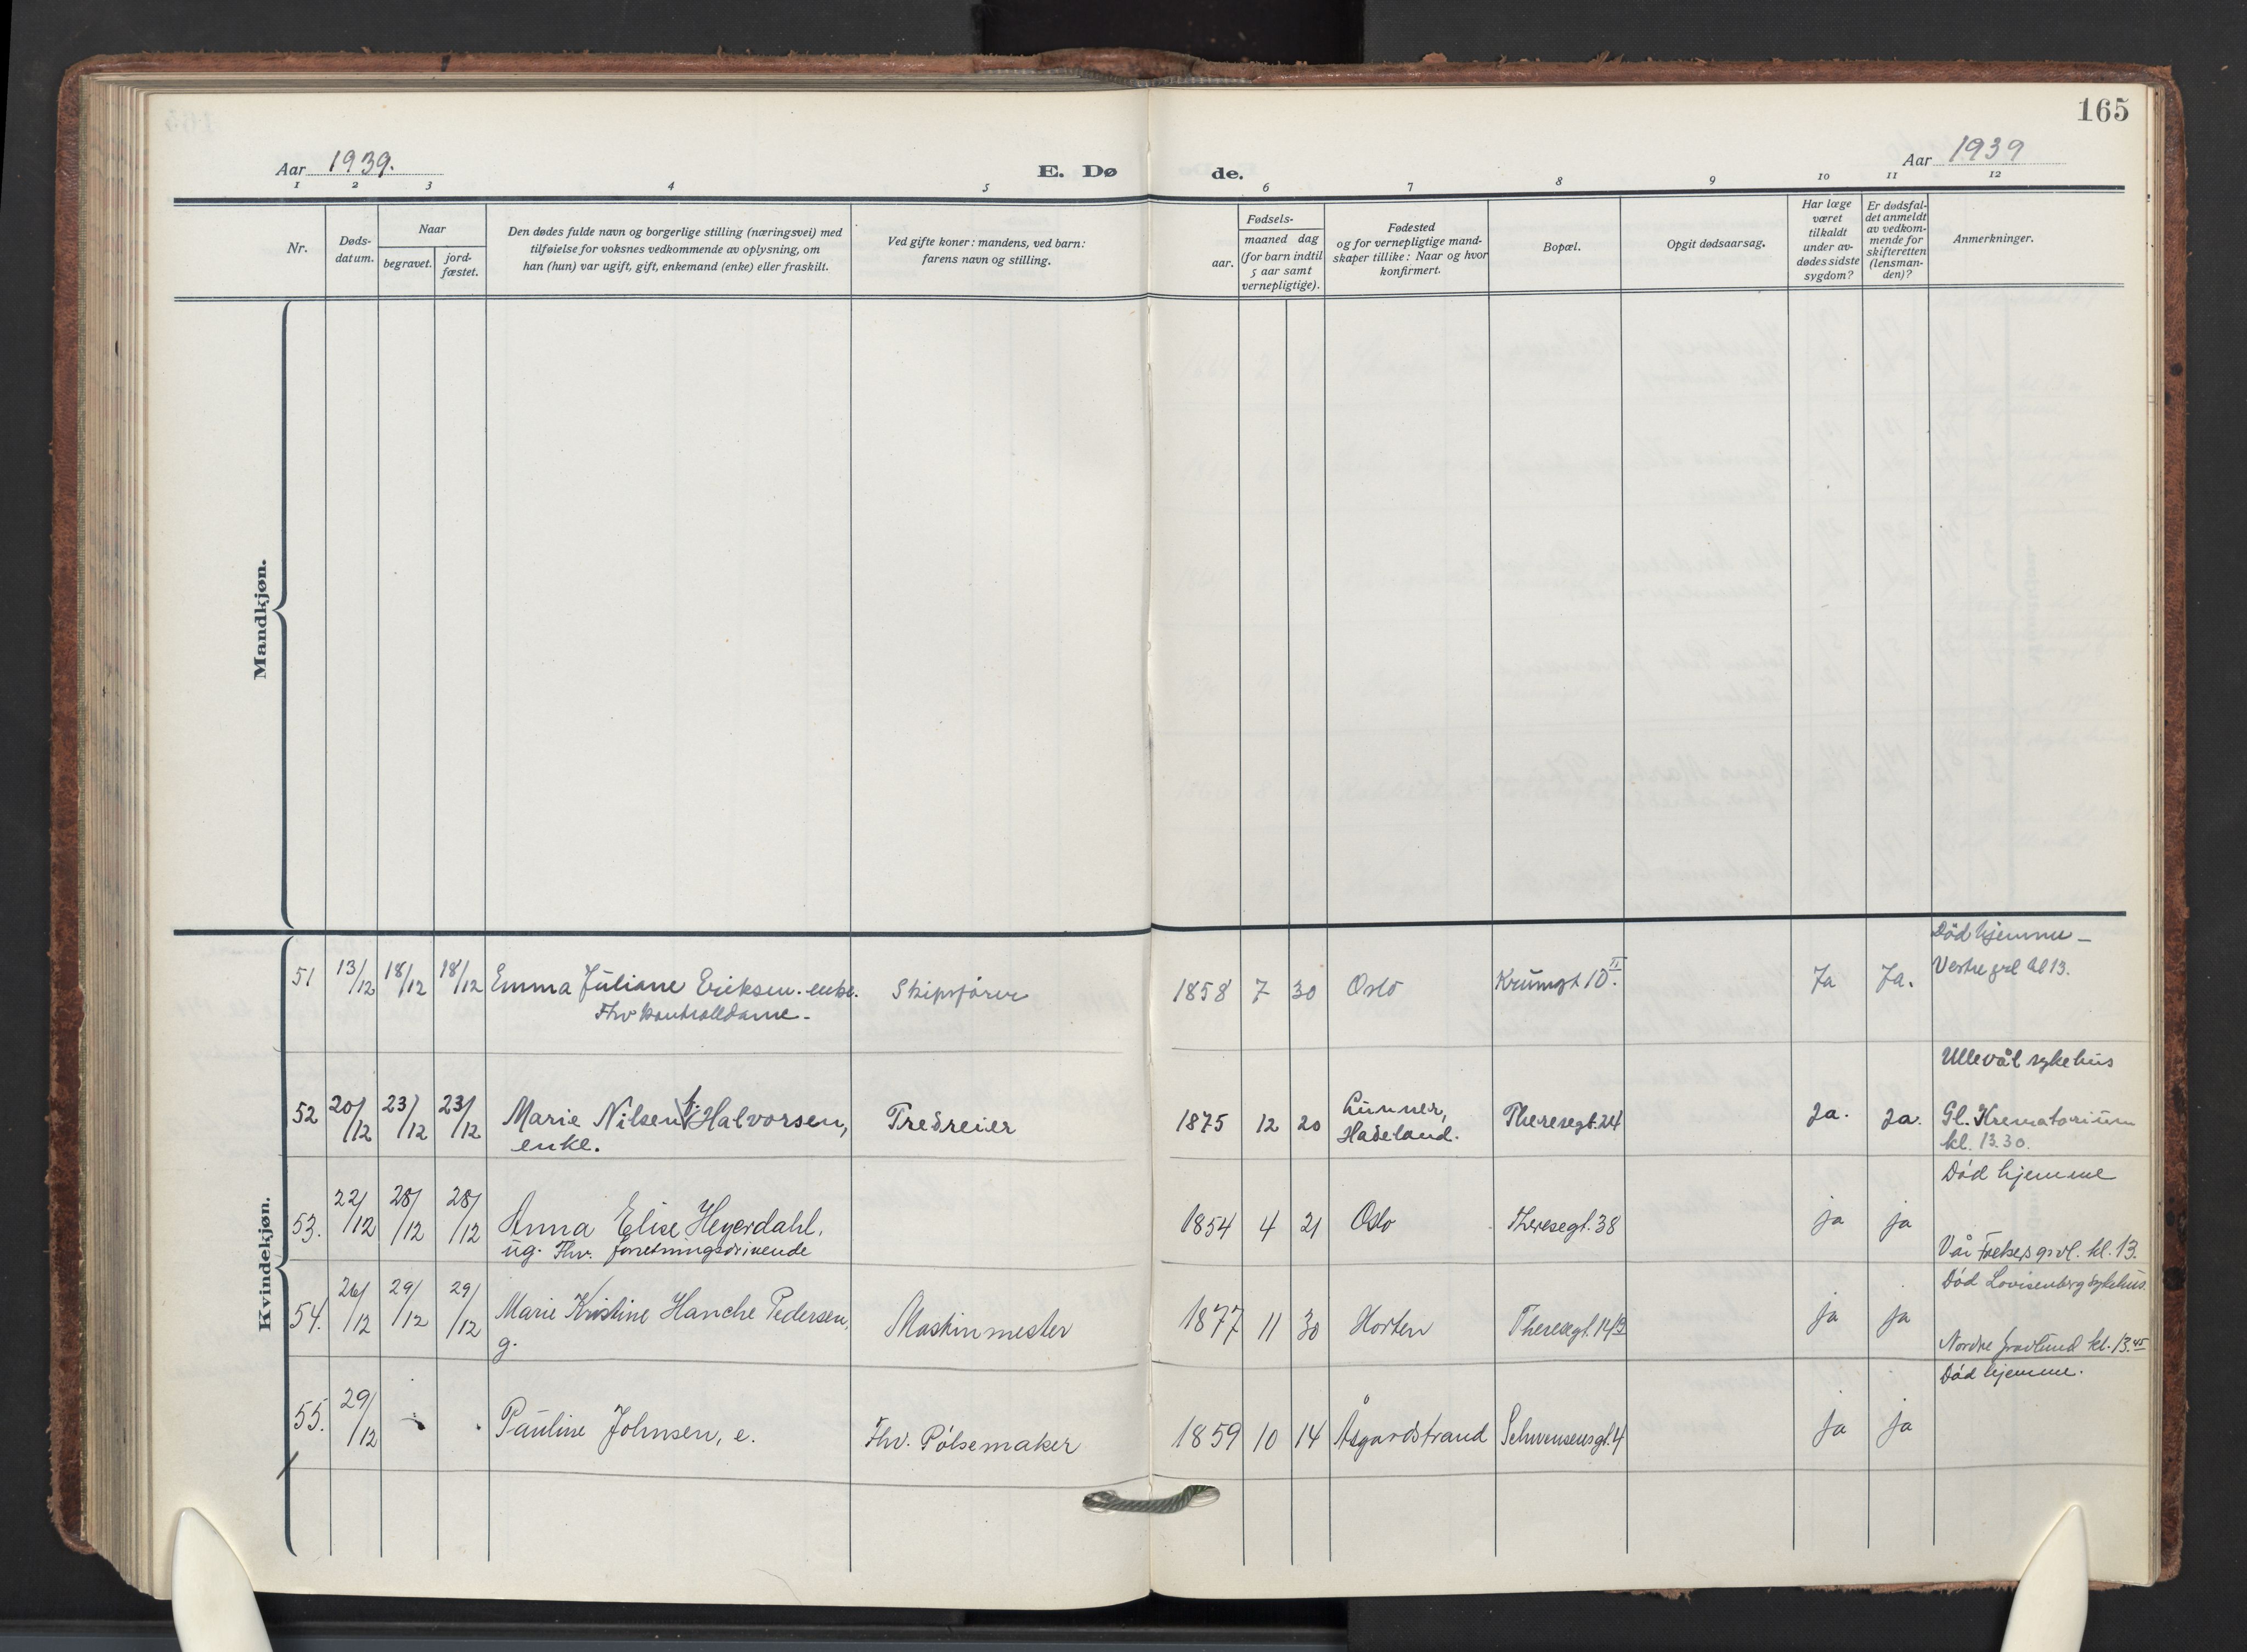 165
Aar 1939.
E. Dø de.
Aar 1939
1 2 3 4 5 6 7 8 9 10 11 12
Nr.
Døds-
datum.
Naar
begravet.
jord-
fæstet.
Den dødes fulde navn og borgerlige stilling (næringsvei) med
tilføielse for voksnes vedkommende av oplysning, om
han (hun) var ugift, gift, enkemand (enke) eller fraskilt.
Ved gifte koner: mandens, ved barn:
farens navn og stilling.
Fødsels-
aar.
maaned dag
(for barn indtil
5 aar samt
vernepligtige).
Fødested
og for vernepligtige mand-
skaper tillike: Naar og hvor
konfirmert.
Bopæl.
Opgit dødsaarsag.
Har læge
været
tilkaldt
under av-
dødes sidste
sygdom?
Er dødsfal-
det anmeldt
av vedkom-
mende for
skifteretten
(lensman-
den)?
Anmerkninger.
Mandkjøn.
Kvindekjøn.
Död hjemme –
51 13/12 18/12 18/12 Emma Juliane Eriksen. enke. Skipsfører 1858 7 30 Oslo Krumgt 10 II. Ja Ja. Vestre grl kl 13.
Thv kontrolldame.-
Ullevål sykehus
52 20/12 23/12 23/12 Marie Nilsen f. Halvorsen, Tredreier 1875 12 20 Lunner, Theresegt. 24 Ja. Ja. Gl. Krematorium
enke. Hadeland. kl. 13.30.
Död hjemme
53. 22/12 28/12 28/12 Anna Elise Heyerdahl. 1854 4 21 Oslo Theresegt. 38 ja ja
ug. Thv. forretningsdrivende Vår Frelsers grvl. kl. 13.
Död Lovisenberg sykehus.
54. 26/12 29/12 29/12 Marie Kristine Hanche Pedersen, Maskinmester 1877 11 30 Horten Theresegt. 14/3 ja ja
g. Nordre gravlund kl. 13.45
Död hjemme.
55. 29/12 Pauline Johnsen, e. Thv. Pölsemaker 1859 10 14 Åsgardstrand Schwensensgt. 4 ja ja